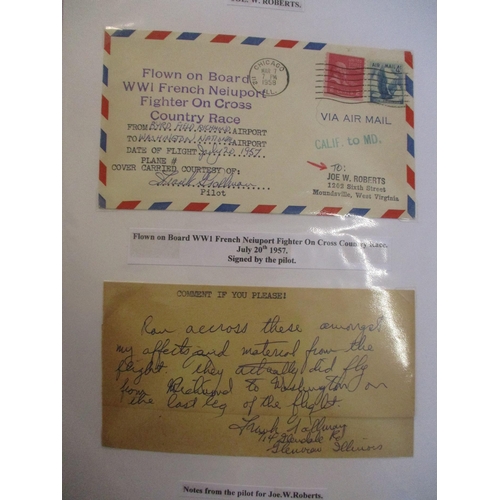 JOE. W. ROBERTS.
CHICAGO
MAR 7
PM
1958
ILL.
Flown on Board
WW1 French Neiuport
Fighter On Cross
Country Race
AIR MAIL
VIA AIR MAIL
CALIF. to MD.
FROM AIRPORT
TO AIRPORT
DATE OF FLIGHT July 20 1957
PLANE #
COVER CARRIED COURTESY OF:
Pilot
TO:
JOE W. ROBERTS
1202 Sixth Street
Moundsville, West Virginia
Flown on Board WW1 French Neiuport Fighter On Cross Country Race.
July 20th 1957.
Signed by the pilot.
COMMENT IF YOU PLEASE:
Ran accross these amongst
my affects and material from the
flight. They actually did fly
from Richmond to Washington on
the last leg of the flight.
Frank
Glenview Illinois
Notes from the pilot for Joe.W.Roberts.